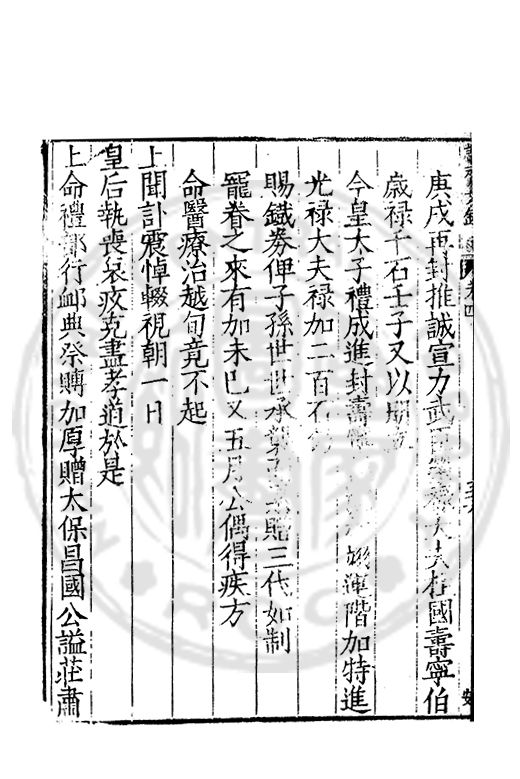 庚戌再封推誠宣力武臣特大夫柱國壽寧伯
歲祿千石壬子又以冊立
今皇太子禮成進封壽寧翊運階加特進
光祿大夫祿加二百石
賜鐵券俾子孫世世承襲貽三代如制
寵眷之來有加未已又五月公偶得疾方
命醫療治越旬竟不起
上聞訃震悼輟視朝一日
皇后執喪哀疚克盡孝道於是
上命禮部行䘏典祭賻加厚贈太保昌國公謚莊肅